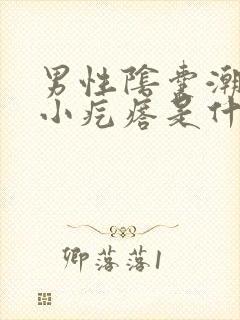 男性陰囊潮
小疙瘩是什
卿落落1